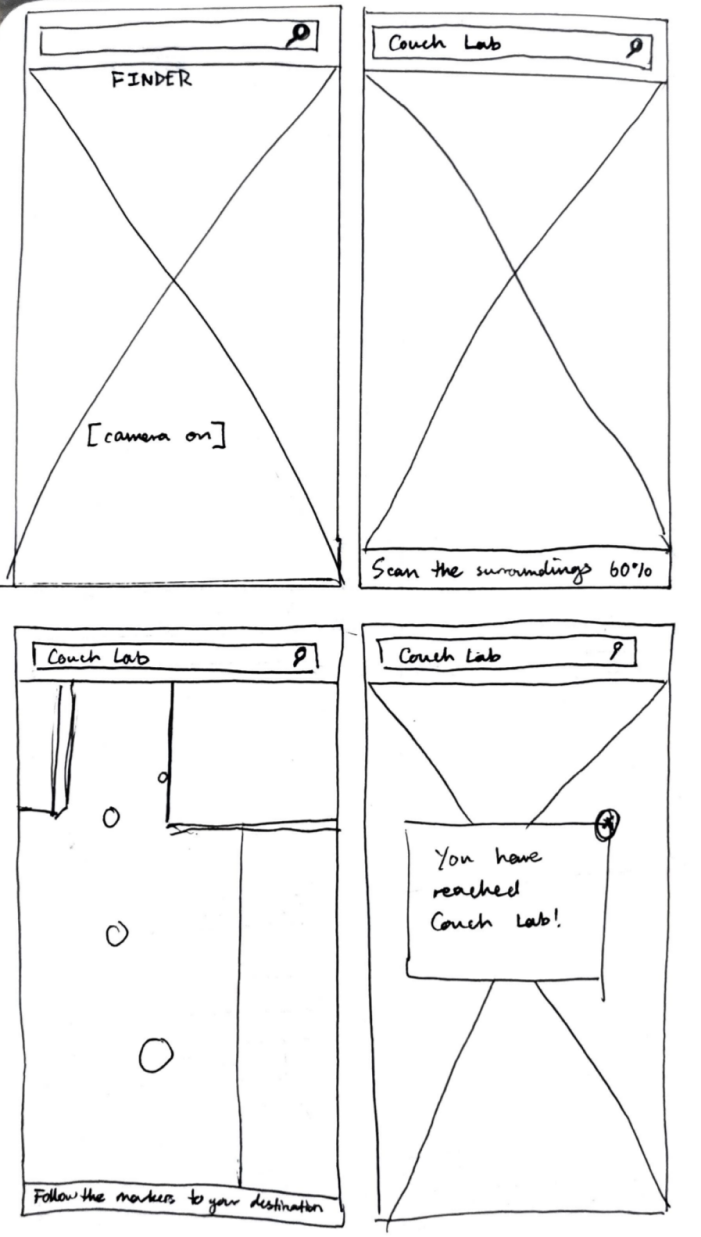 FINDER
[camera on]
Couch Lab
Scan the surroundings 60%
Couch Lab
Follow the markers to your destination
Couch Lab
You have
reached
Couch Lab!